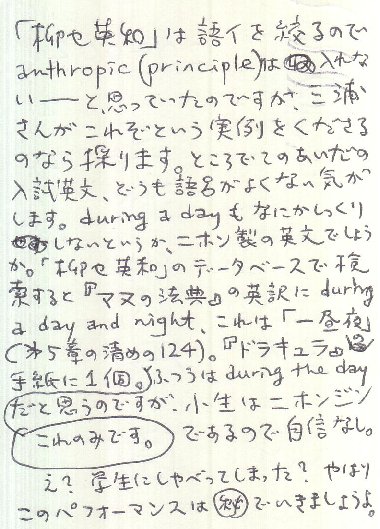 「柳セ英和」は語イを絞るので
anthropic (principle)は入れな
い——と思っていたのですが、三浦
さんがこれぞという実例をくださる
のなら採ります。ところでこのあいだの
入試英文、どうも語呂がよくない気が
します。during a dayもなにかしっくり
しないというか、ニホン製の英文でしょう
か。「柳セ英和」のデータベースで検
索すると『マヌの法典』の英訳にduring
a day and night、これは「一昼夜」
(第5章の清めの124)。『ドラキュラ』
手紙に1個。ふつうはduring the day
だと思うのですが、小生はニホンジン
これのみです。であるので自信なし。
え? 学生にしゃべってしまった? やはり
このパフォーマンスは㊙でいきましょうよ。